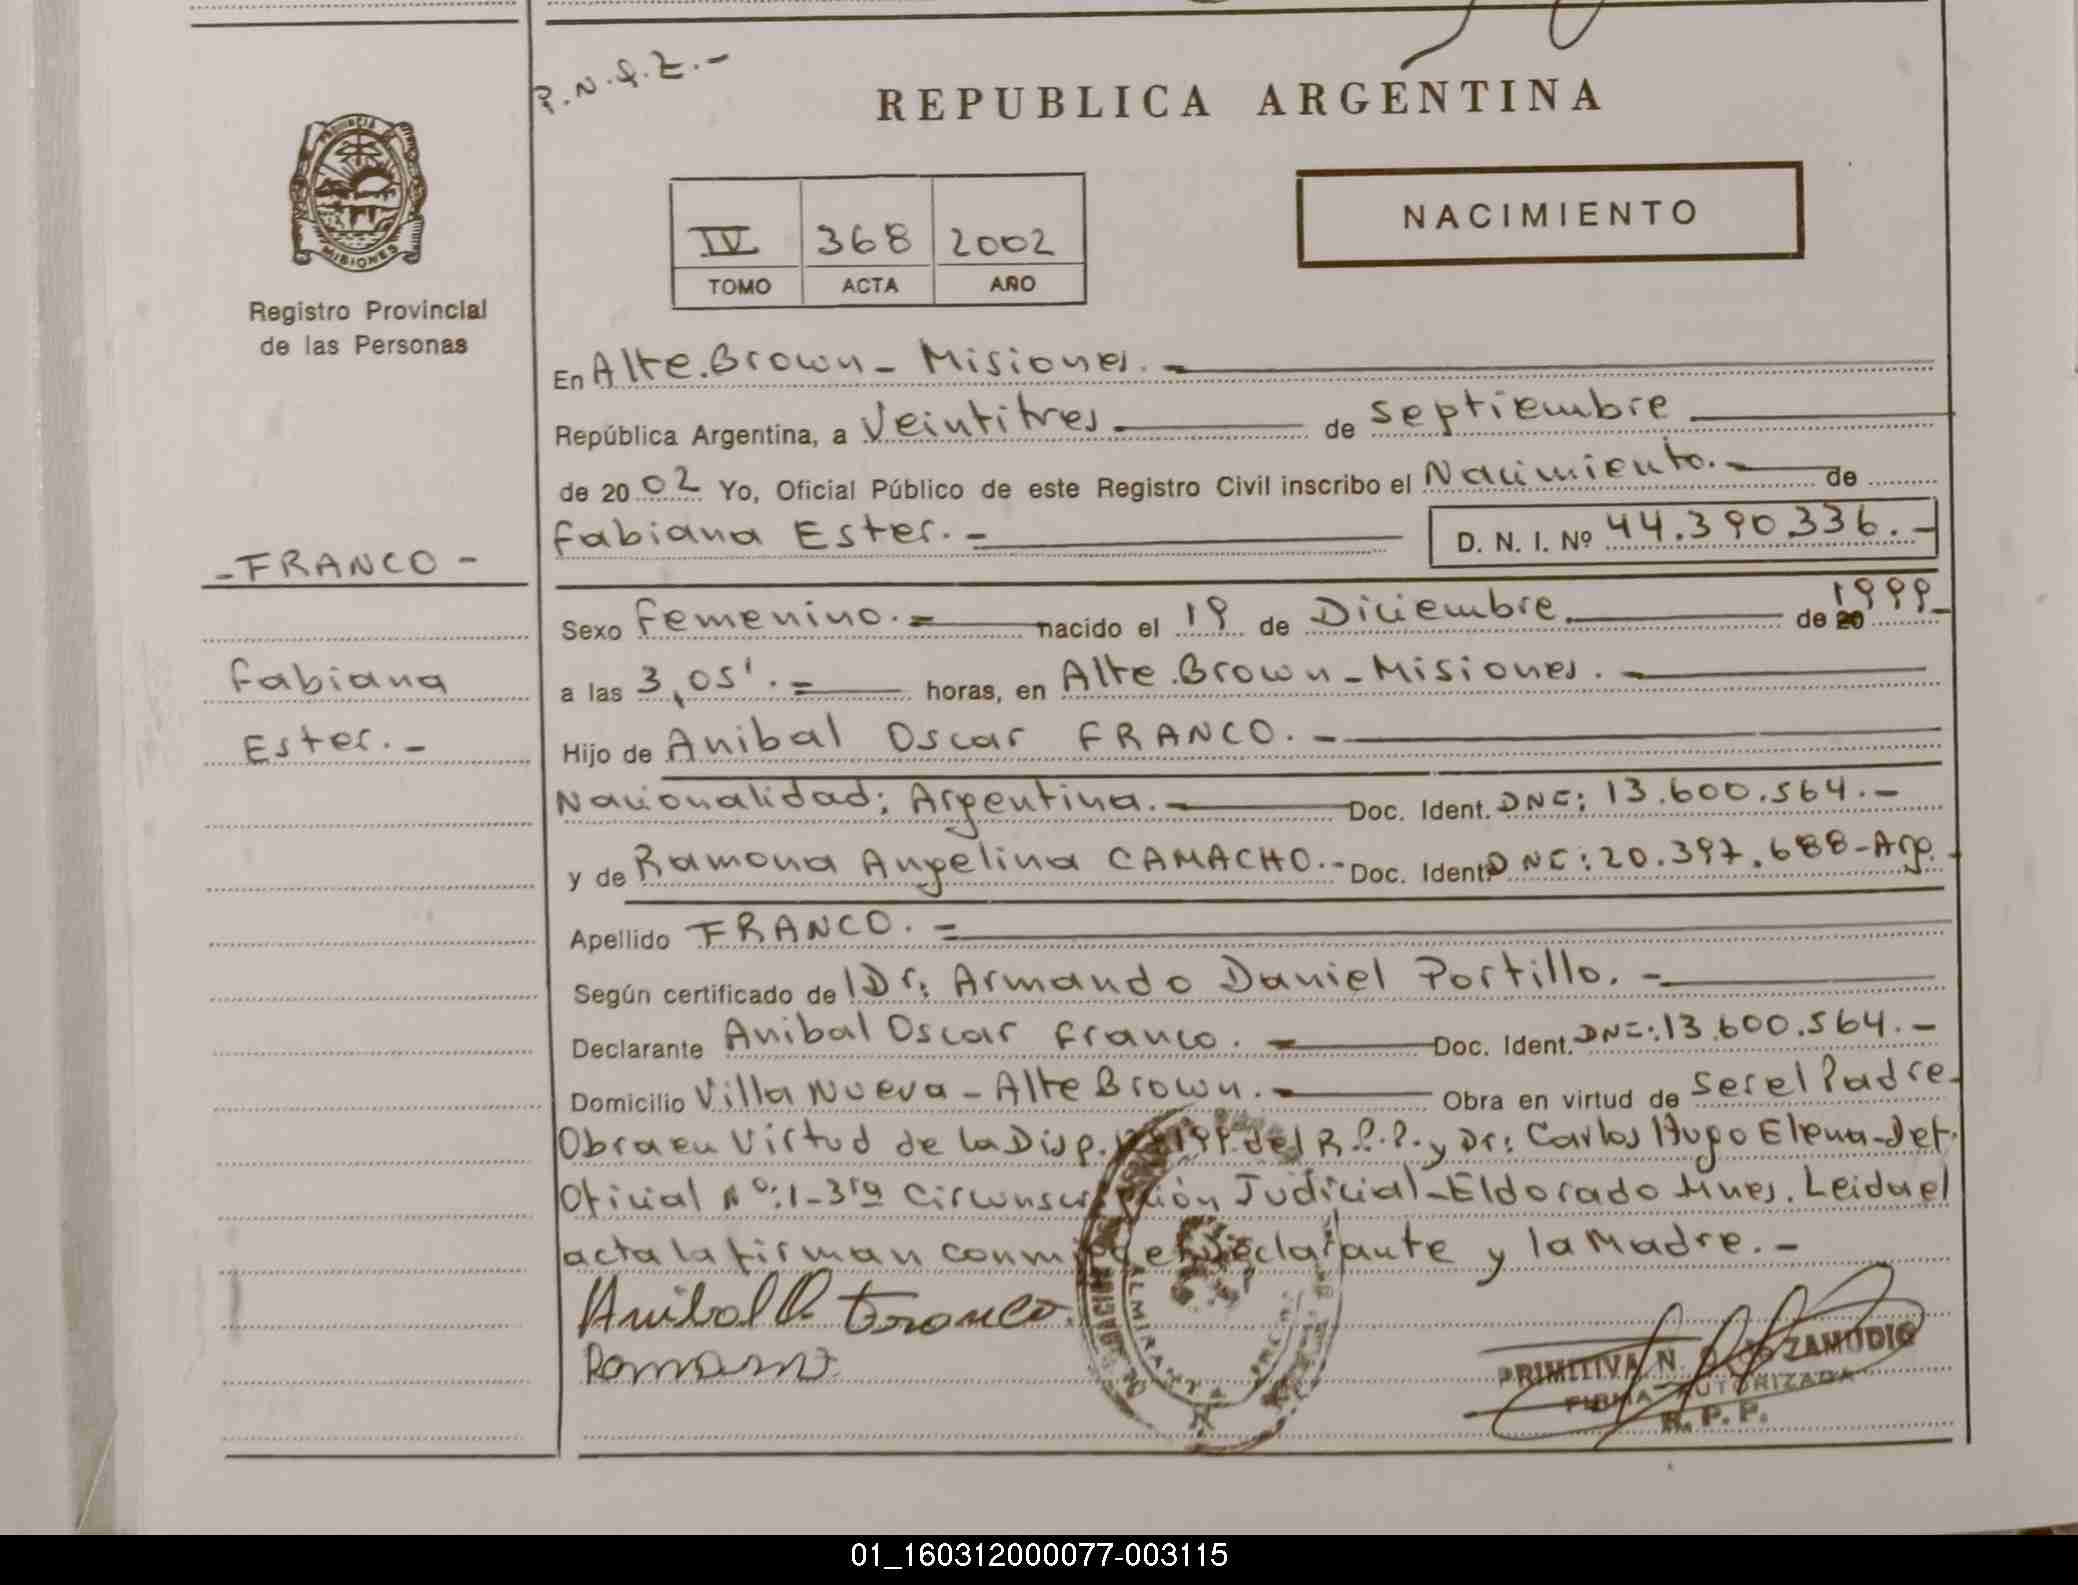 P.N.Q.Z.-
REPUBLICA ARGENTINA
PROVINCIA DE
MISIONES
Registro Provincial
de las Personas
IV 368 2002
TOMO ACTA AÑO
NACIMIENTO
En Alte.Brown - Misiones.-
República Argentina, a Veintitres de septiembre
de 2002 Yo, Oficial Público de este Registro Civil inscribo el Nacimiento.- de
Fabiana Ester.- D. N. I. Nº 44.390.336.-
- FRANCO -
Fabiana
Ester.-
Sexo Femenino.- nacido el 19 de Diciembre de 20 1999-
a las 3,05'.- horas, en Alte.Brown - Misiones.-
Hijo de Anibal Oscar FRANCO.-
Nacionalidad: Argentina.- Doc. Ident. DNI: 13.600.564.-
y de Ramona Angelina CAMACHO.- Doc. Ident. DNI: 20.397.688-Arg.
Apellido FRANCO.-
Según certificado de Dr: Armando Daniel Portillo.-
Declarante Anibal Oscar Franco.- Doc. Ident. DNI: 13.600.564.-
Domicilio Villa Nueva - Alte Brown.- Obra en virtud de Ser el Padre-
Obra en Virtud de la Disp. del R.P.P. y Dr: Carlos Hugo Elena-Def.
Oficial Nº:1-3ra Circunscripción Judicial-Eldorado Mnes. Leida el
acta la firman conmigo el Declarante y la Madre.-
Anibal O. Franco
PRIMITIVA N. ZAMUDIO
FIRMA AUTORIZADA
R. P. P.
01_160312000077-003115